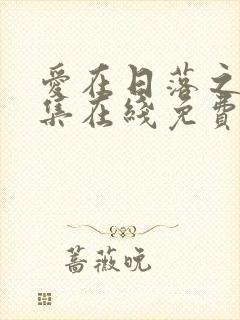 愛在日落之
集在綫免費
薔薇晚